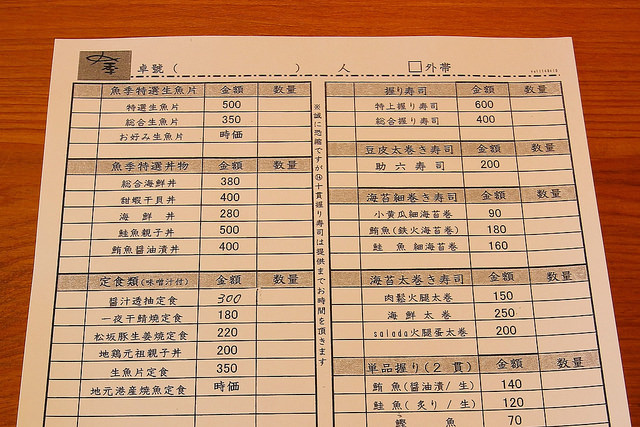 卓號( ) 人 □外帶
魚季特選生魚片 金額 數量
特選生魚片 500
綜合生魚片 350
お好み生魚片 時価
魚季特選丼物 金額 數量
綜合海鮮丼 380
甜蝦干貝丼 400
海鮮丼 280
鮭魚親子丼 500
鮪魚醬油漬丼 400
定食類(味噌汁付) 金額 數量
醬汁透抽定食 300
一夜干鯖燒定食 180
松坂豚生姜燒定食 220
地鶏元祖親子丼 200
生魚片定食 350
地元港産焼魚定食 時価
握り寿司 金額 數量
特上握り寿司 600
綜合握り寿司 400
豆皮太巻き寿司 金額 數量
助六寿司 200
海苔細巻き寿司 金額 數量
小黄瓜細海苔巻 90
鮪魚(鉄火海苔巻) 180
鮭魚細海苔巻 160
海苔太巻き寿司 金額 數量
肉鬆火腿太巻 150
海鮮太巻 250
salada火腿蛋太巻 200
単品握り(2貫) 金額 數量
鮪魚(醬油漬/生) 140
鮭魚(炙り/生) 120
鰹魚 70